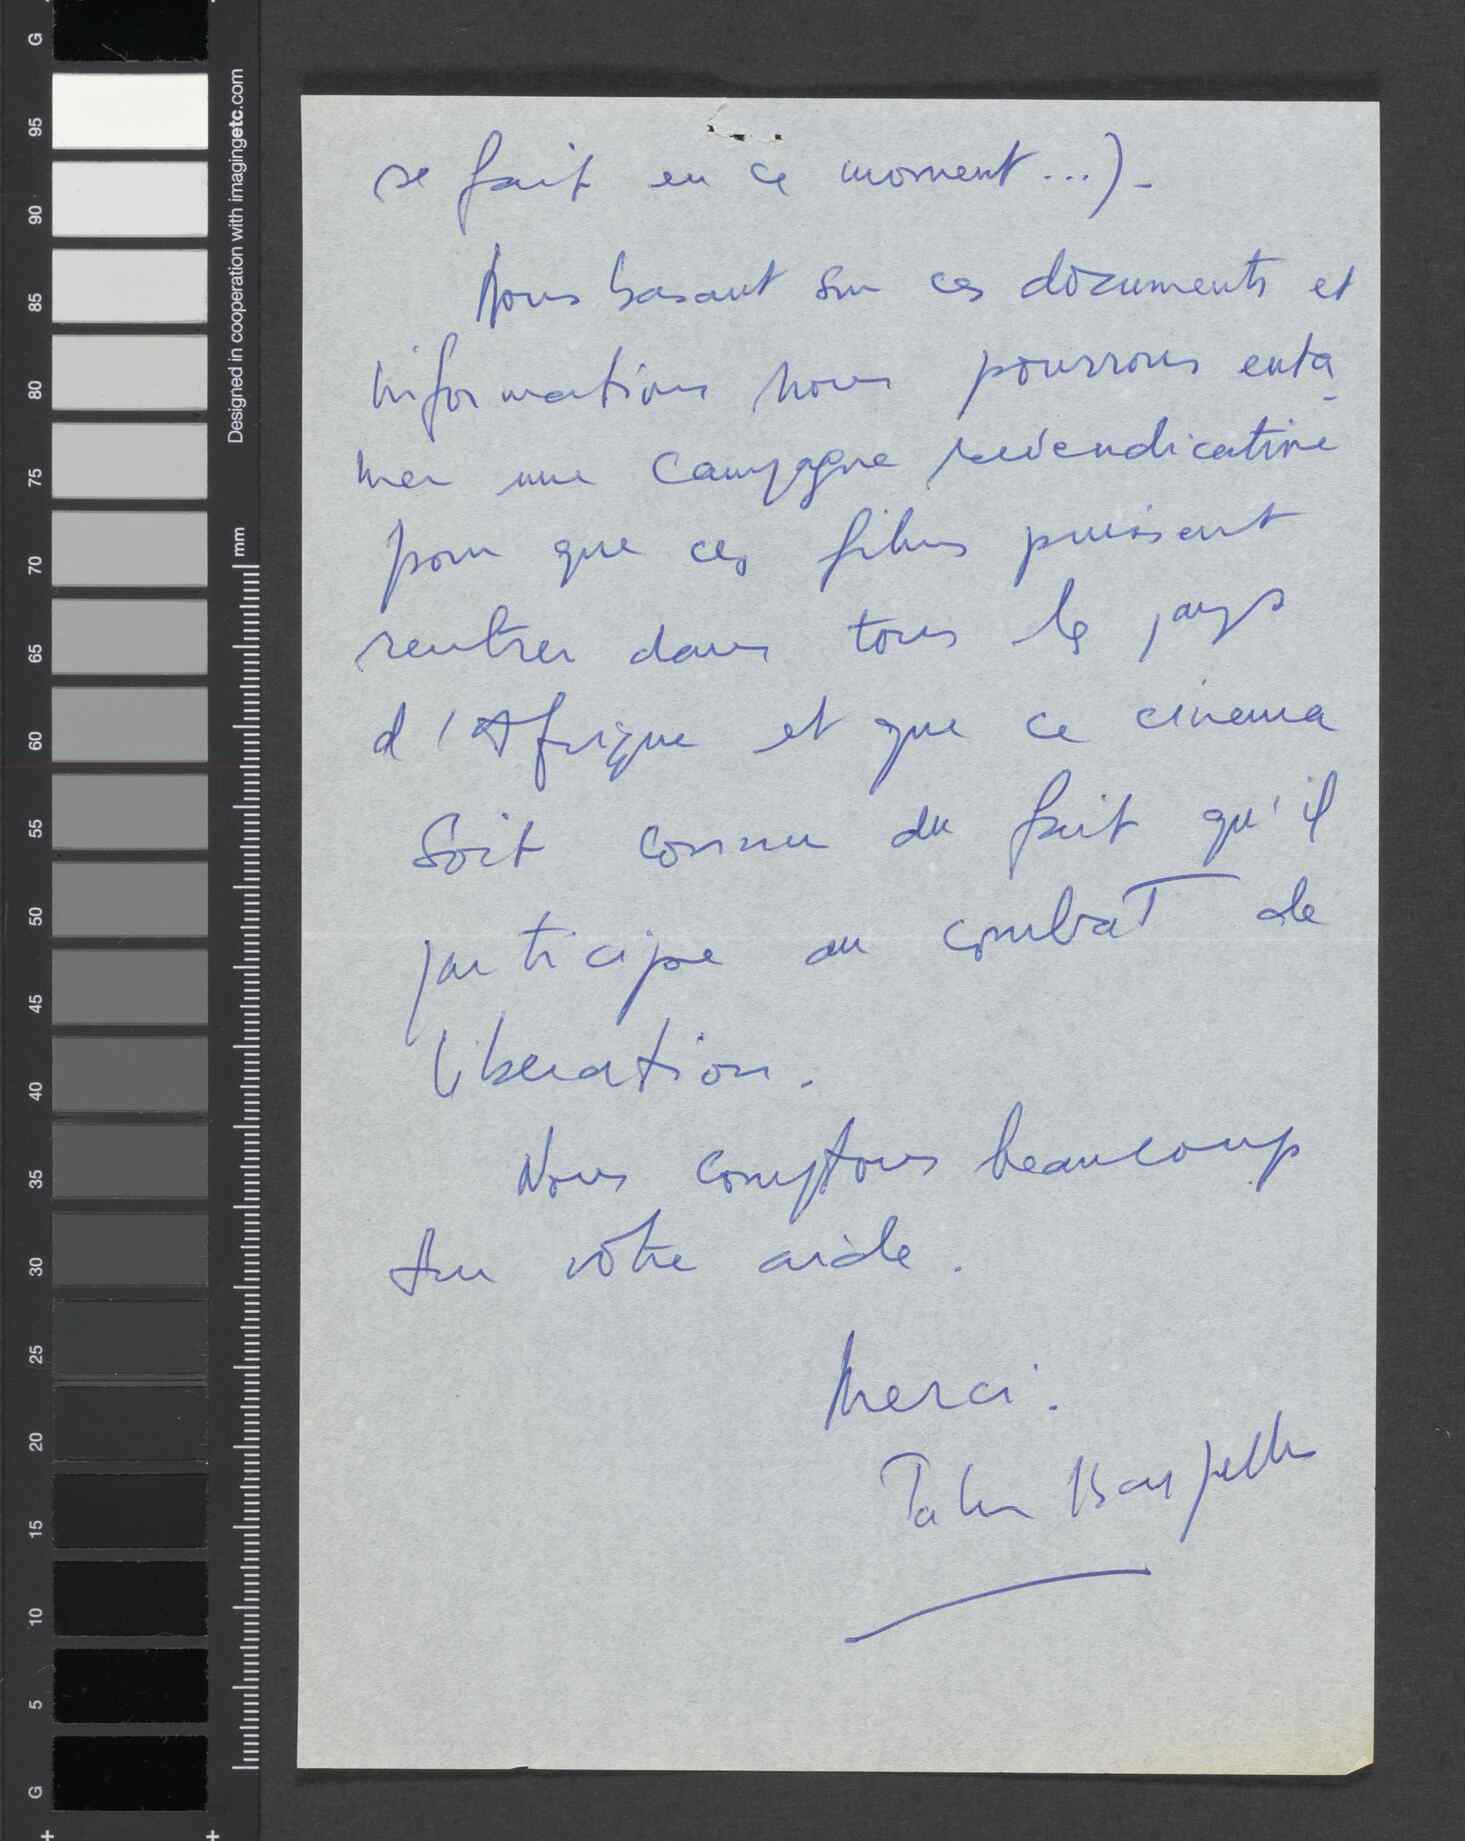 se fait en ce moment...)-
Nous basant sur ces documents et
informations nous pourrons enta-
mer une campagne revendicative
pour que ces films puissent
rentrer dans tous les pays
d'Afrique et que ce cinema
soit connu du fait qu'il
participe au combat de
libération.
Nous comptons beaucoup
sur vôtre aide.
Merci.
G
95
90
85
80
75
70
65
60
55
50
45
40
35
30
25
20
15
10
5
G
Designed in cooperation with imagingetc.com
mm